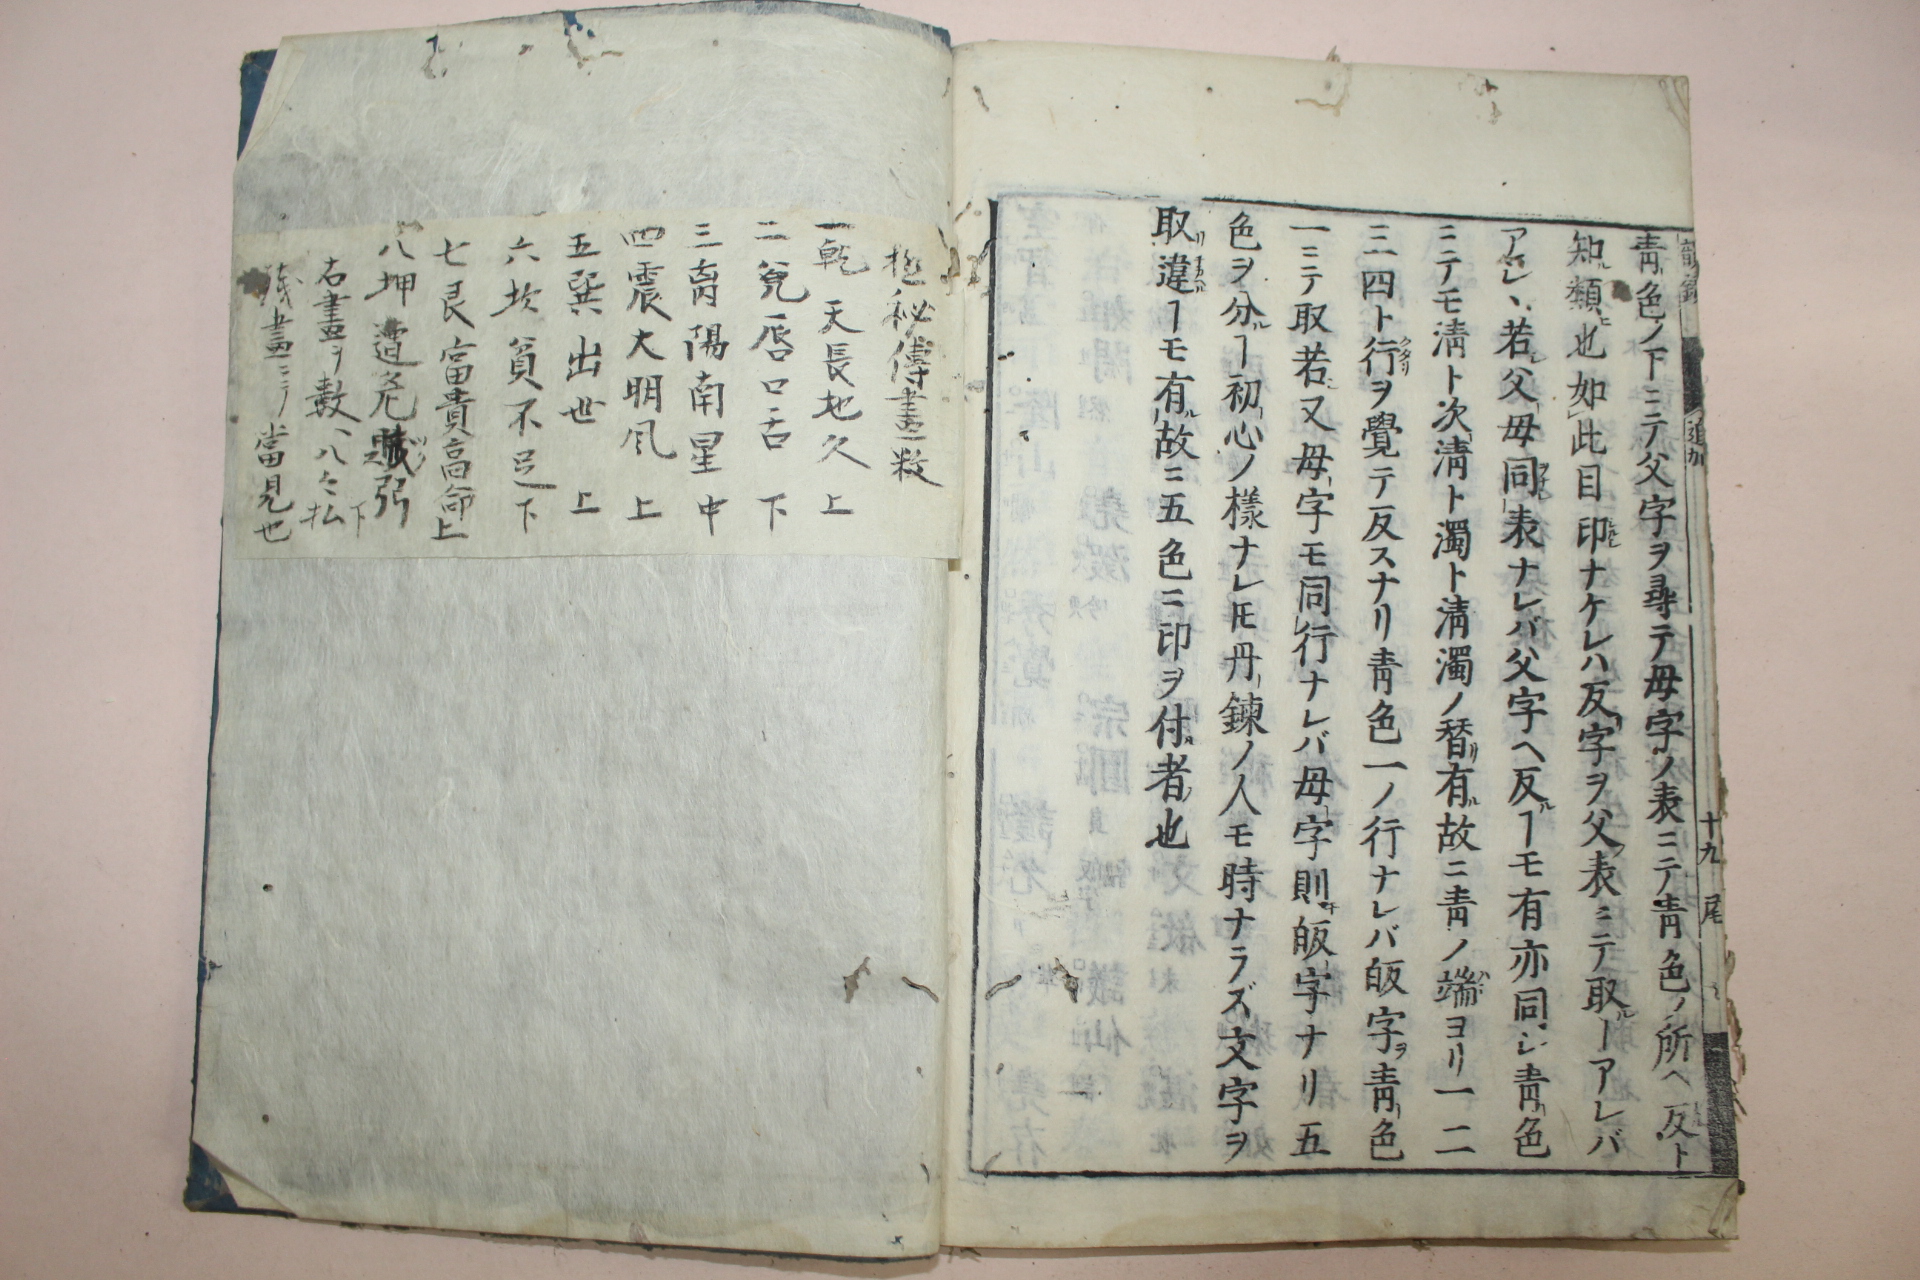 青色ノ下ニテ父字ヲ尋テ母字ノ表ニテ青色ノ所ヘ反ト
知ル類也如此目印ナケレハ反字ヲ父表ニテ取ルヿアレバ
アケレ、若父母同表ナレバ父字ヘ反ルヿモ有亦同シ青色
ニテモ淸ト次淸ト濁ト淸濁ノ替リ有ル故ニ青ノ端ヨリ一二
三四ト行ヲ覺テ反スナリ青色一ノ行ナレバ皈字ヲ青色
一ニテ取若又母字モ同行ナレバ母字則皈字ナリ五
色ヲ分ルヿ初心ノ樣ナレ𪜈丹鍊ノ人モ時ナラズ文字ヲ
取リ違ヿモ有ル故ニ五色ニ印ヲ付者也
追加
十九 尾
極秘傳畫数
一乾 天長地久 上
二兌 唇口舌 下
三离 陽南星 中
四震 大明風 上
五巽 出世 上
六坎 貧不足 下
七艮 富貴高命 上
八坤 遭免賊弱 下
右畫ヲ數、八々払
残畫ニテ當見也